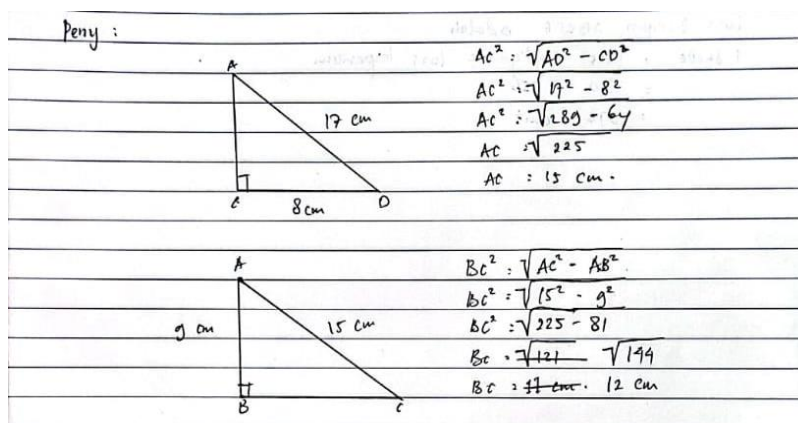 Peny :
A
17 cm
C
8 cm
D
AC² : √AD² - CD²
AC² : √17² - 8²
AC² : √289 - 64
AC : √225
AC : 15 cm.
A
9 cm
15 cm
B
C
BC² : √AC² - AB²
BC² : √15² - 9²
BC² : √225 - 81
BC : √121 √144
BC : 11 cm. 12 cm